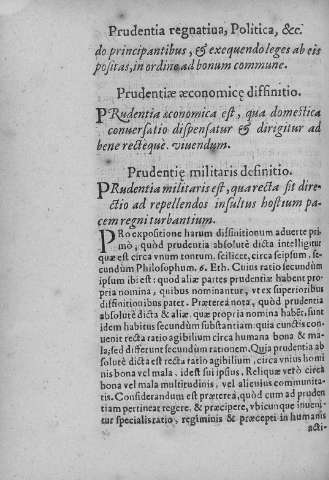 Prudentia regnatiua, Politica, &c.
do principantibus, & exequendo leges ab eis
positas, in ordine ad bonum commune.
Prudentiæ æconomicę diffinitio.
PRudentia æconomica est, qua domestica
conuersatio dispensatur & dirigitur ad
bene recteque. viuendum.
Prudentię militaris definitio.
PRudentia militaris est, qua recta sit dire-
ctio ad repellendos insultus hostium pa-
cem regni turbantium.
PRo expositione harum diffinitionum aduerte pri
mò, quòd prudentia absolutè dicta intelligitur
quæ est circa vnum tontum. scilicet, circa seipsum. se-
cundùm Philosophum. 6. Eth. Cuius ratio secundùm
ipsum ibi est: quod aliæ partes prudentiæ habent pro-
pria nomina, quibus nominantur, vt ex superioribus
diffinitionibus patet. Præterea nota, quòd prudentia
absolutè dicta & aliæ quæ propria nomina habẽt, sunt
idem habitus secundùm substantiam: quia cunctis con-
uenit recta ratio agibilium circa humana bona & ma-
la; sed differunt secundùm rationem. Quia prudentia ab-
solutè dicta est recta ratio agibilium, circa vnius homi
nis bona vel mala. id est sui ipsius. Reliquæ verò circa
bona vel mala multitudinis, vel alicuius communita-
tis. Considerandum est præterea, quòd cum ad pruden
tiam pertineat regere, & præcipere, vbicunque inueni-
tur specialis ratio, regiminis & præcepti in humanis
acti-